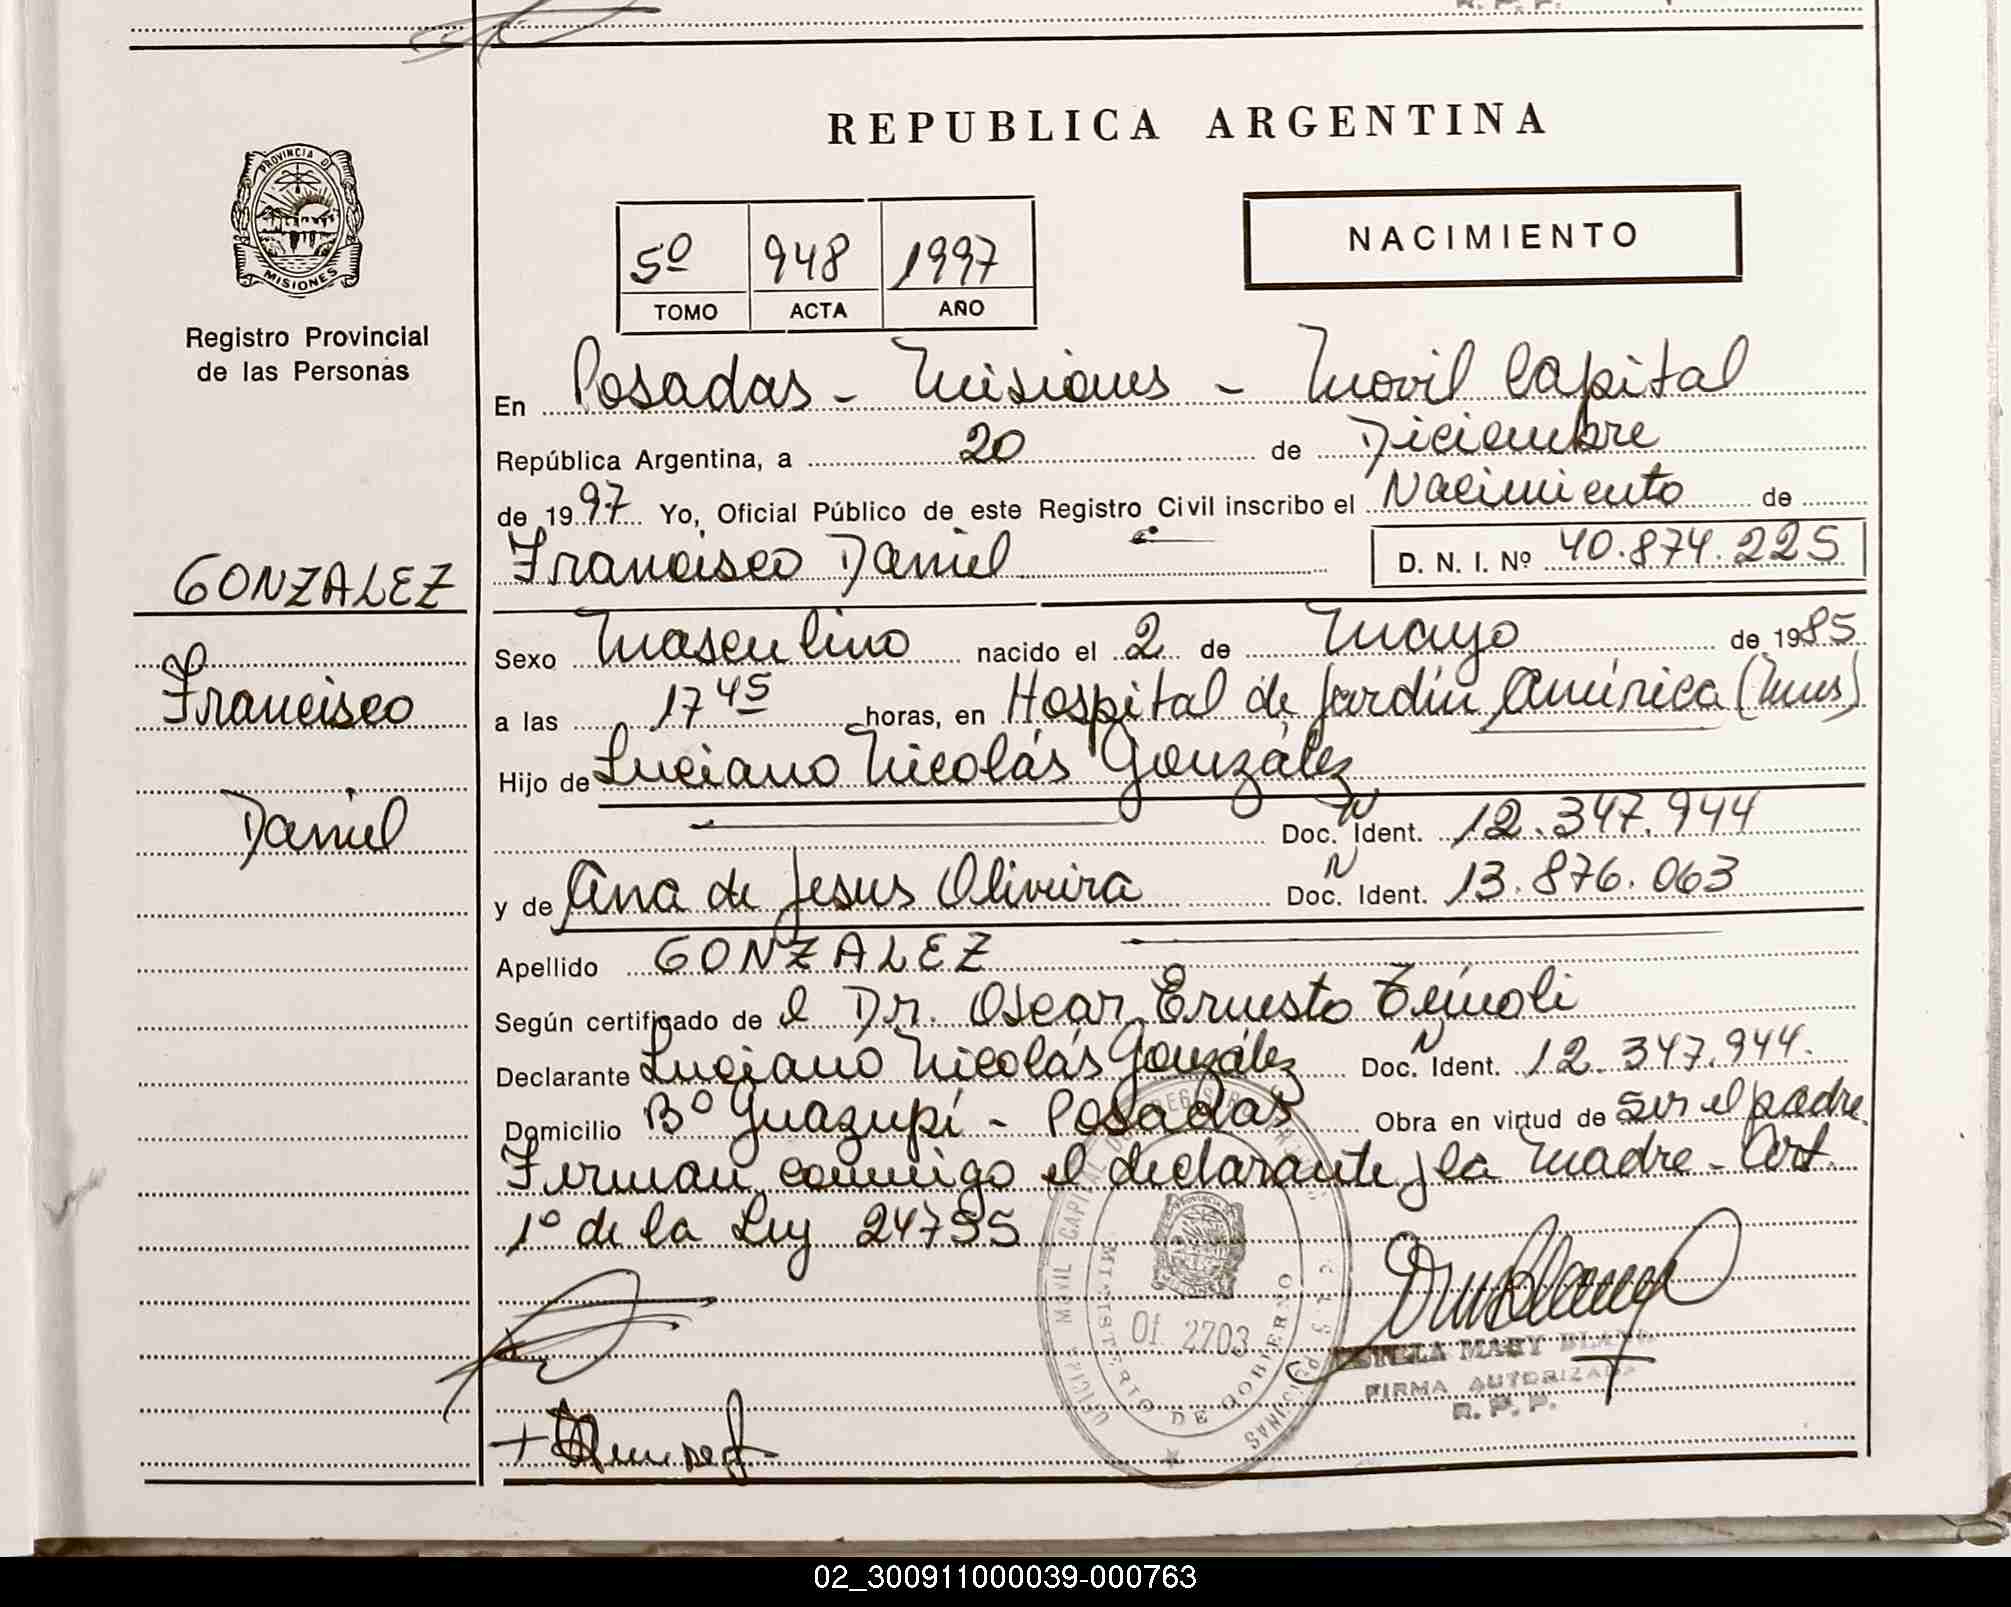 REPUBLICA ARGENTINA
PROVINCIA DE
MISIONES
Registro Provincial
de las Personas
5º 948 1997
TOMO ACTA AÑO
NACIMIENTO
En Posadas - Misiones - Movil Capital
República Argentina, a 20 de Diciembre
de 1997 Yo, Oficial Público de este Registro Civil inscribo el Nacimiento de
Francisco Daniel D. N. I. Nº 40.874.225
GONZALEZ
Francisco
Daniel
Sexo Masculino nacido el 2 de Mayo de 1985
a las 17 45 horas, en Hospital de Jardín América (Mnes)
Hijo de Luciano Nicolás González
Doc. N Ident. 12.347.944
y de Ana de Jesus Oliveira Doc. N Ident. 13.876.063
Apellido GONZALEZ
Según certificado de el Dr. Oscar Ernesto
Declarante Luciano Nicolás González Doc. N Ident. 12.347.944.
Domicilio Bº Guazupí - Posadas Obra en virtud de ser el padre.
Firman conmigo el declarante y la madre - Art.
1º de la Ley 24755
OFICIAL MOVIL CAPITAL
MINISTERIO DE GOBIERNO
Of. 2703
MISIONES
ESTELA MARY
FIRMA AUTORIZADA
R. P. P.
02_300911000039-000763